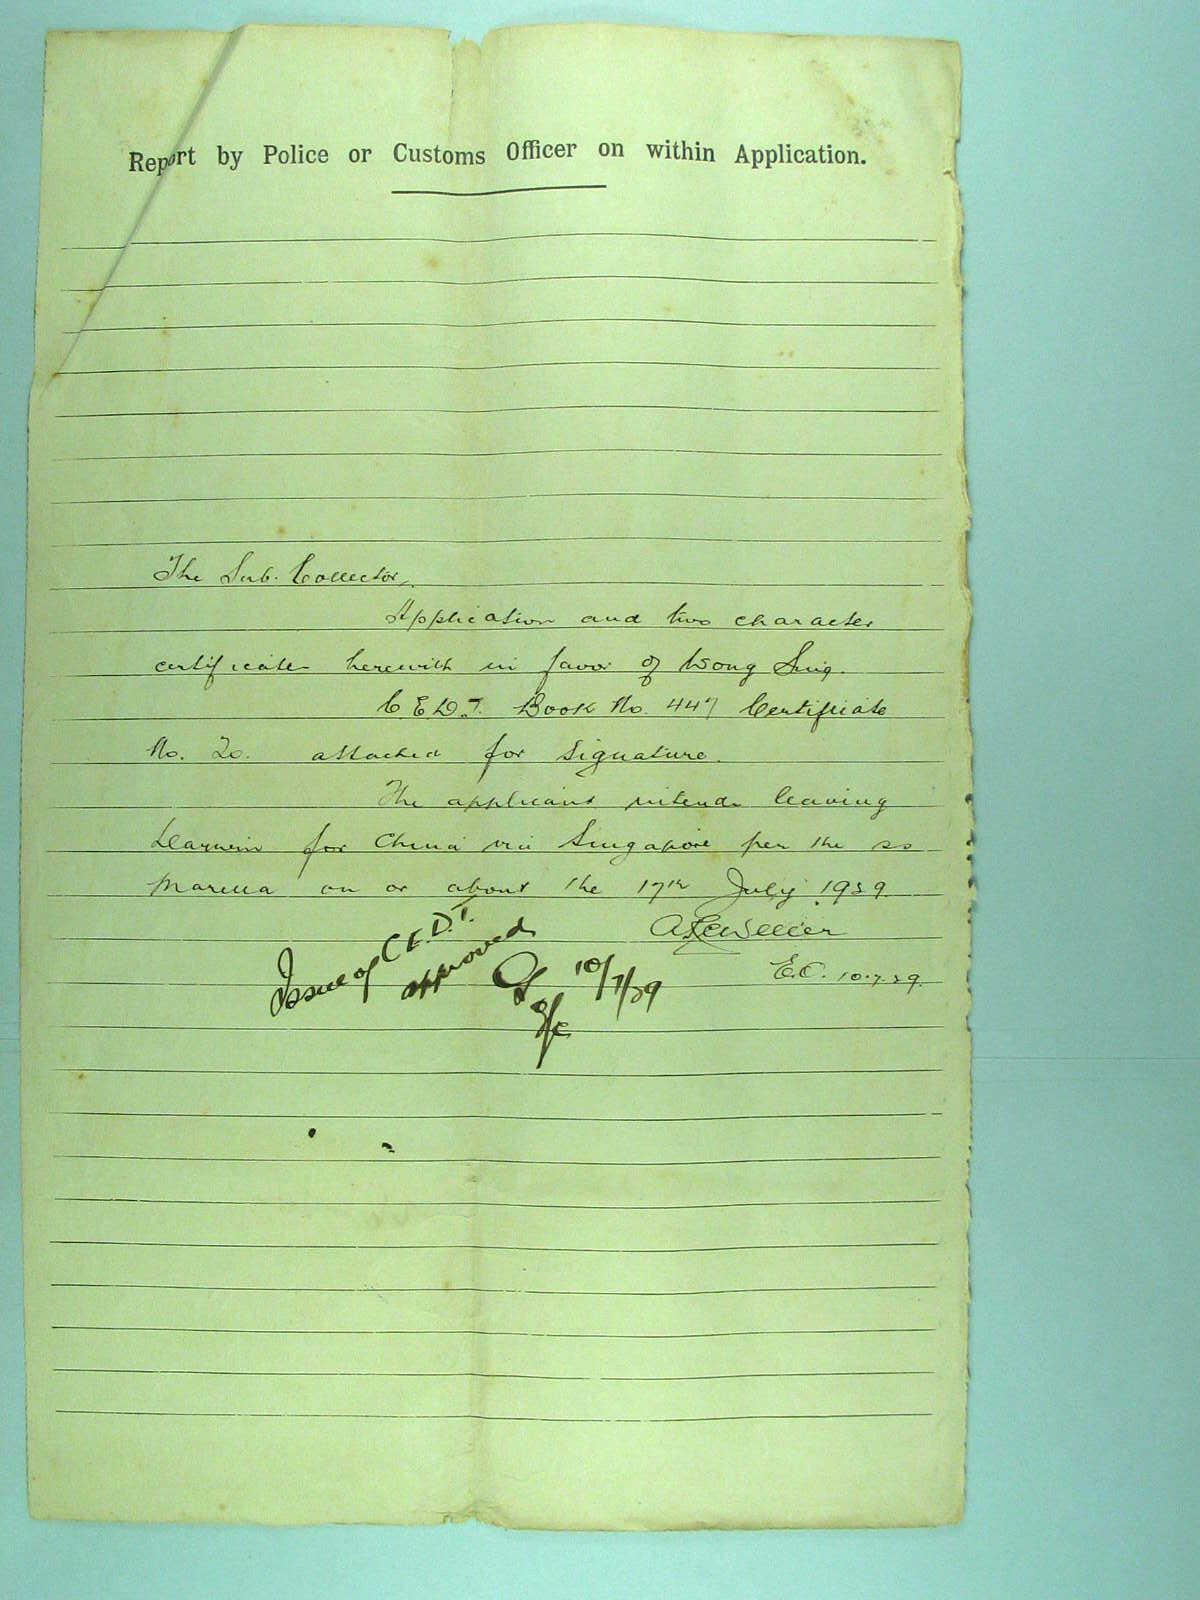 Report by Police or Customs Officer on within Application.
The Sub. Collector,
Application and two character
certificates herewith in favor of Wong Sing.
C E D. T. Book No. 447 Certificate
No. 20. attached for signature.
The applicant intends leaving
Darwin for China via Singapore per the ss
Marella on or about the 17th July 1939.
E.O. 10.7.39.
Issue of C E. D. T.
approved
10/7/39
S/C